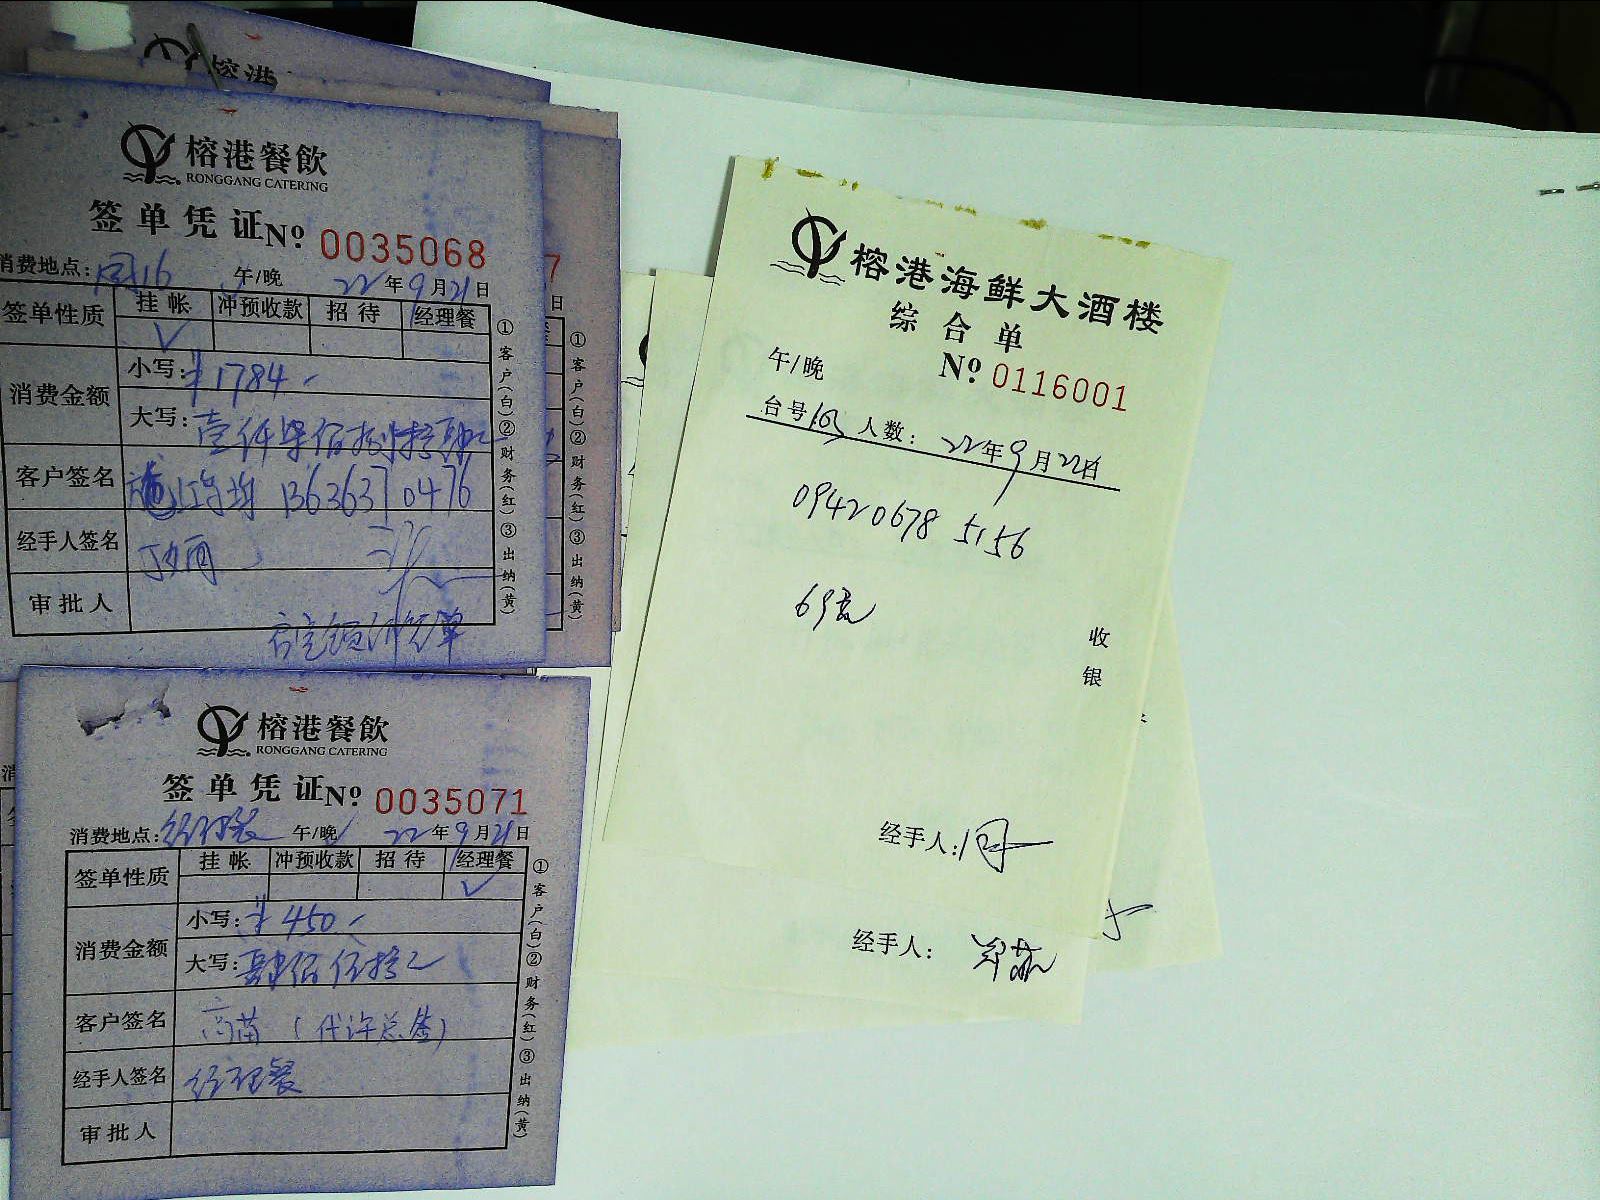 榕港
榕港餐飲
RONGGANG CATERING
签单凭证 No. 0035068
7
消费地点: 午/晚 22年9月21日
日
签单性质 挂帐 冲预收款 招待 经理餐
✓
消费金额 小写: ¥1784
大写: 壹仟柒佰捌拾肆元
客户签名 13636370476
经手人签名
审批人
①客户(白)②财务(红)③出纳(黄)
①客户(白)②财务(红)③出纳(黄)
榕港餐飲
RONGGANG CATERING
签单凭证 No. 0035071
消费地点: 经理餐 午/晚 22年9月21日
签单性质 挂帐 冲预收款 招待 经理餐
✓
消费金额 小写: ¥450
大写: 肆佰伍拾元
客户签名 高苗(代许总签)
经手人签名 经理餐
审批人
①客户(白)②财务(红)③出纳(黄)
榕港海鲜大酒楼
综合单
午/晚 No. 0116001
台号163 人数: 22年9月22日
09420678 5156
收银
经手人:
经手人: